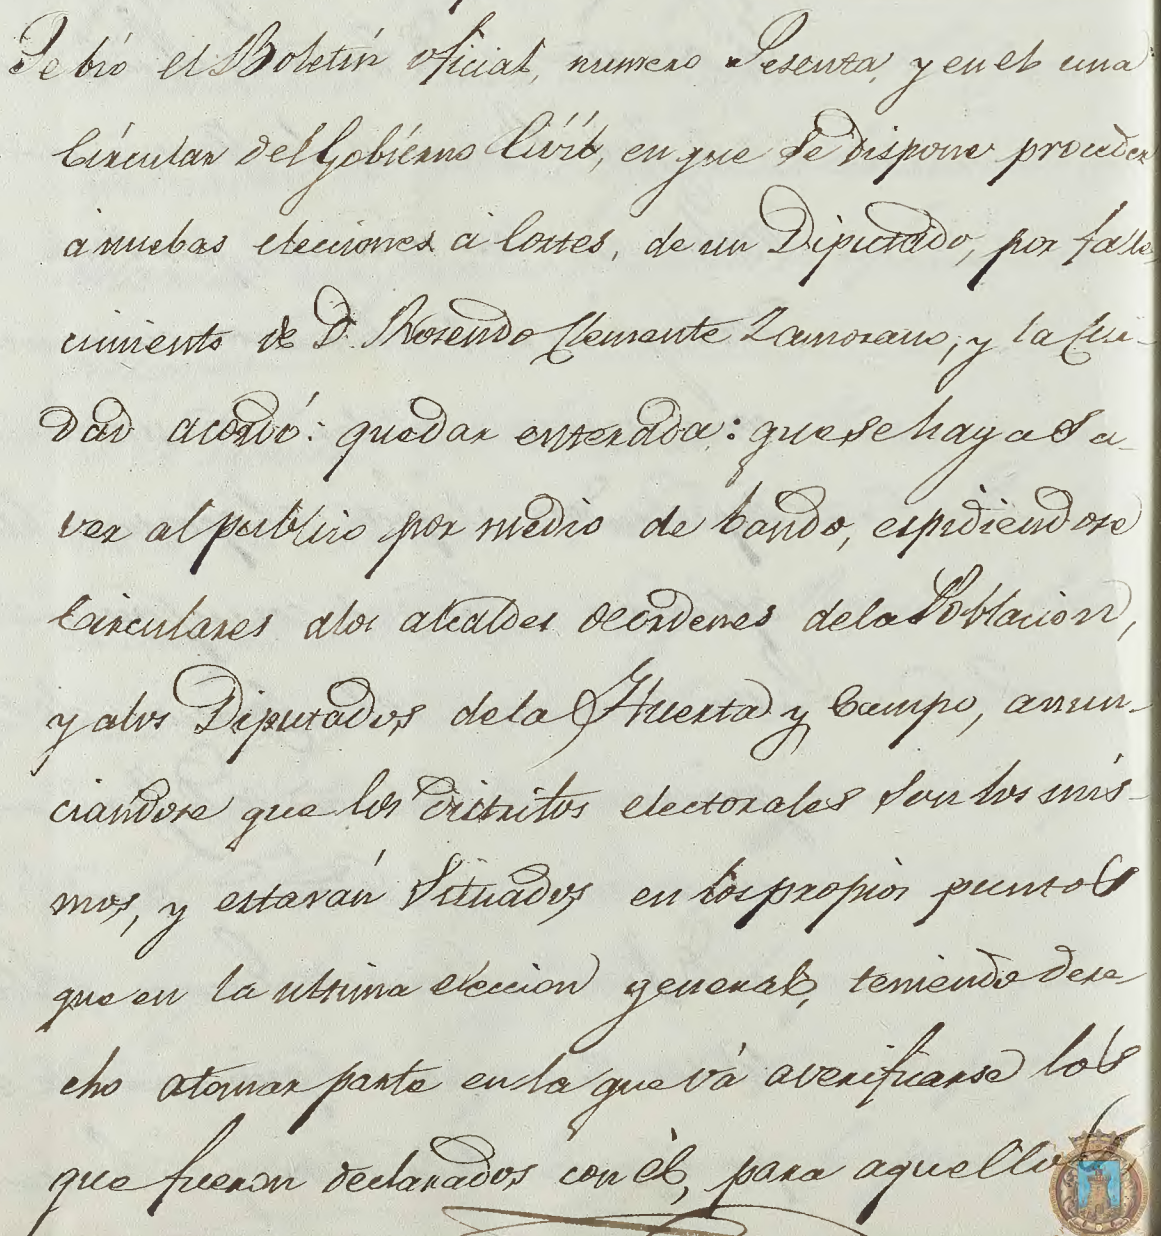 Se bió el Boletín oficial, numero Sesenta, y en el una
Círcular del Gobíerno Cívíl, en que se dispone proceder
a nuebas elecciones á Cortes, de un Diputado, por falle
cimiento de D. Rosendo Clemente Zamorano, y la Ciu-
dad acordó: quedar enterada: que se haya sa-
ver al publico por medio de bando, espidiendose
Circulares alos alcaldes de órdenes dela Poblacion,
y alos Diputados dela Huerta y Campo, anun-
ciandose que los distritos electorales son los mis-
mos, y estarán situados en los propios puntos
que en la ultima eleccion general, teniendo dere-
cho atomar parte en la que vá averificarse los
que fueron declarados con él, para aquello